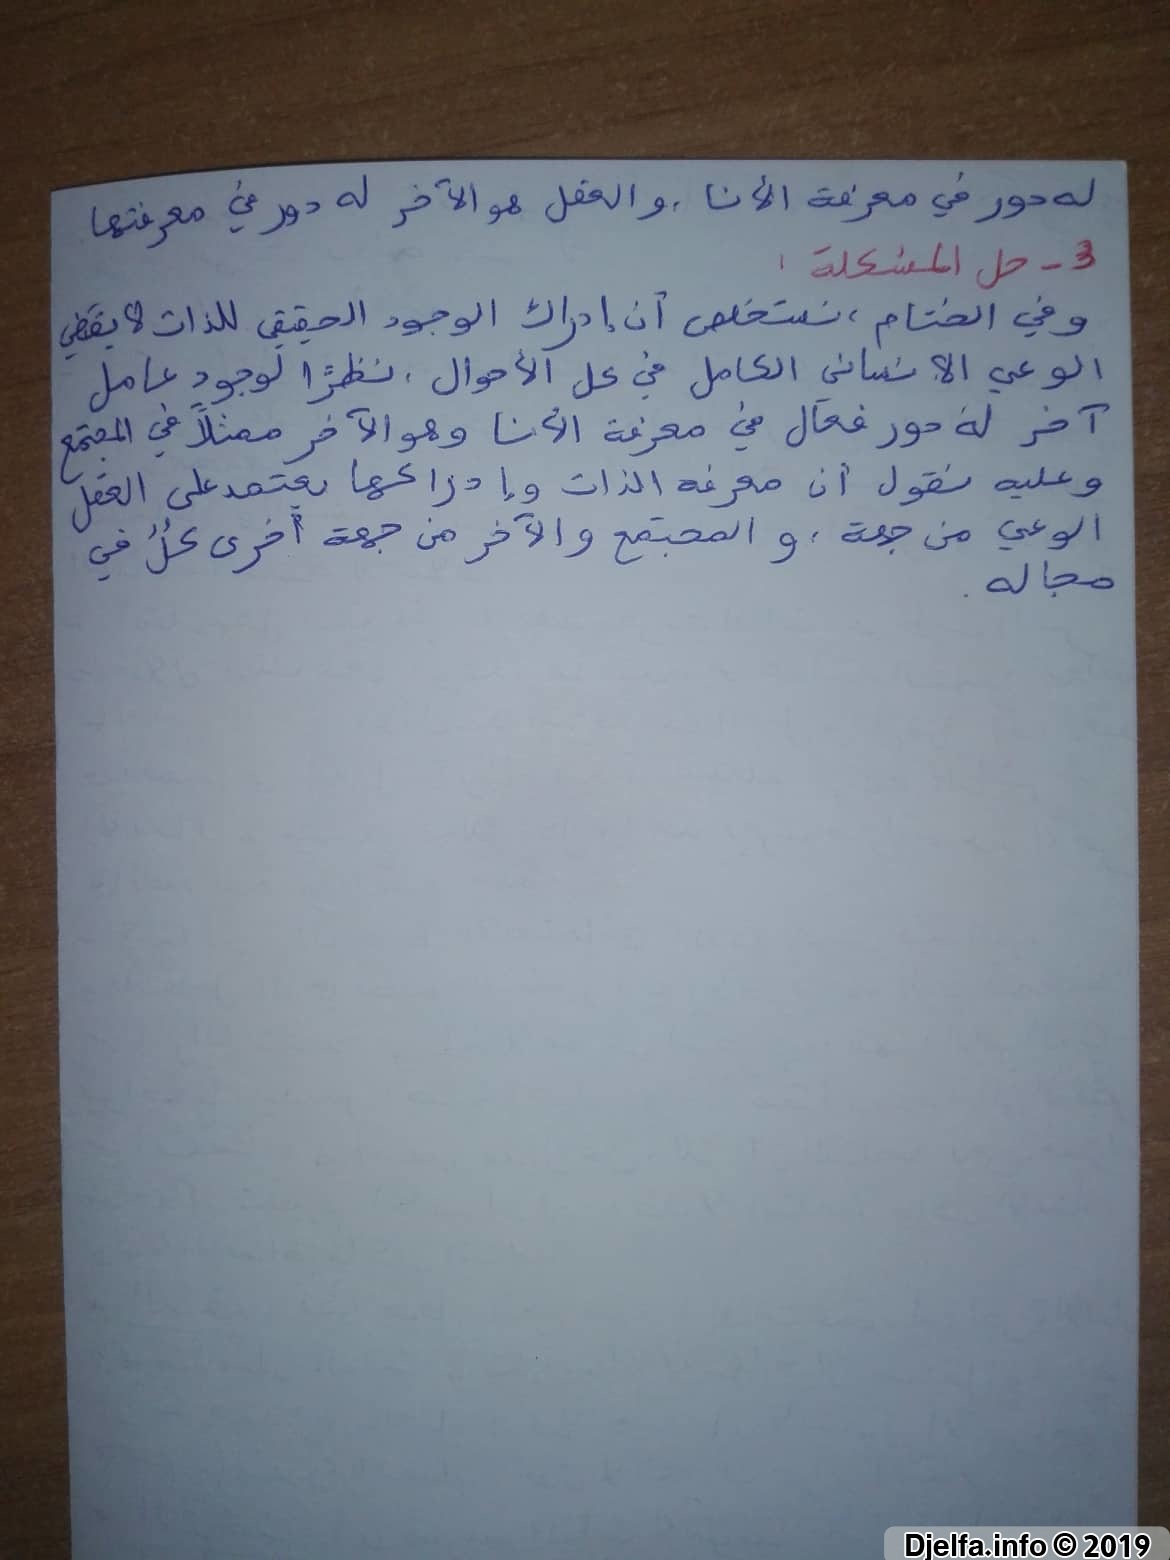 له دور في معرفة الأنا ، و العقل هو الآخر له دور في معرفتها
3 - حل المشكلة :
وفي الختام ، نستخلص أن إدراك الوجود الحقيقي للذات لا يقضي
الوعي الإنساني الكامل في كل الأحوال ، نظرًا لوجود عامل
آخر له دور فعال في معرفة الأنا وهو الآخر ممثلاً في المجتمع
وعليه نقول أن معرفه الذات وإدراكها يعتمد على العقل
الوعي من جهة ، و المجتمع والآخر من جهة أخرى كلُ في
مجاله .
Djelfa.info © 2019